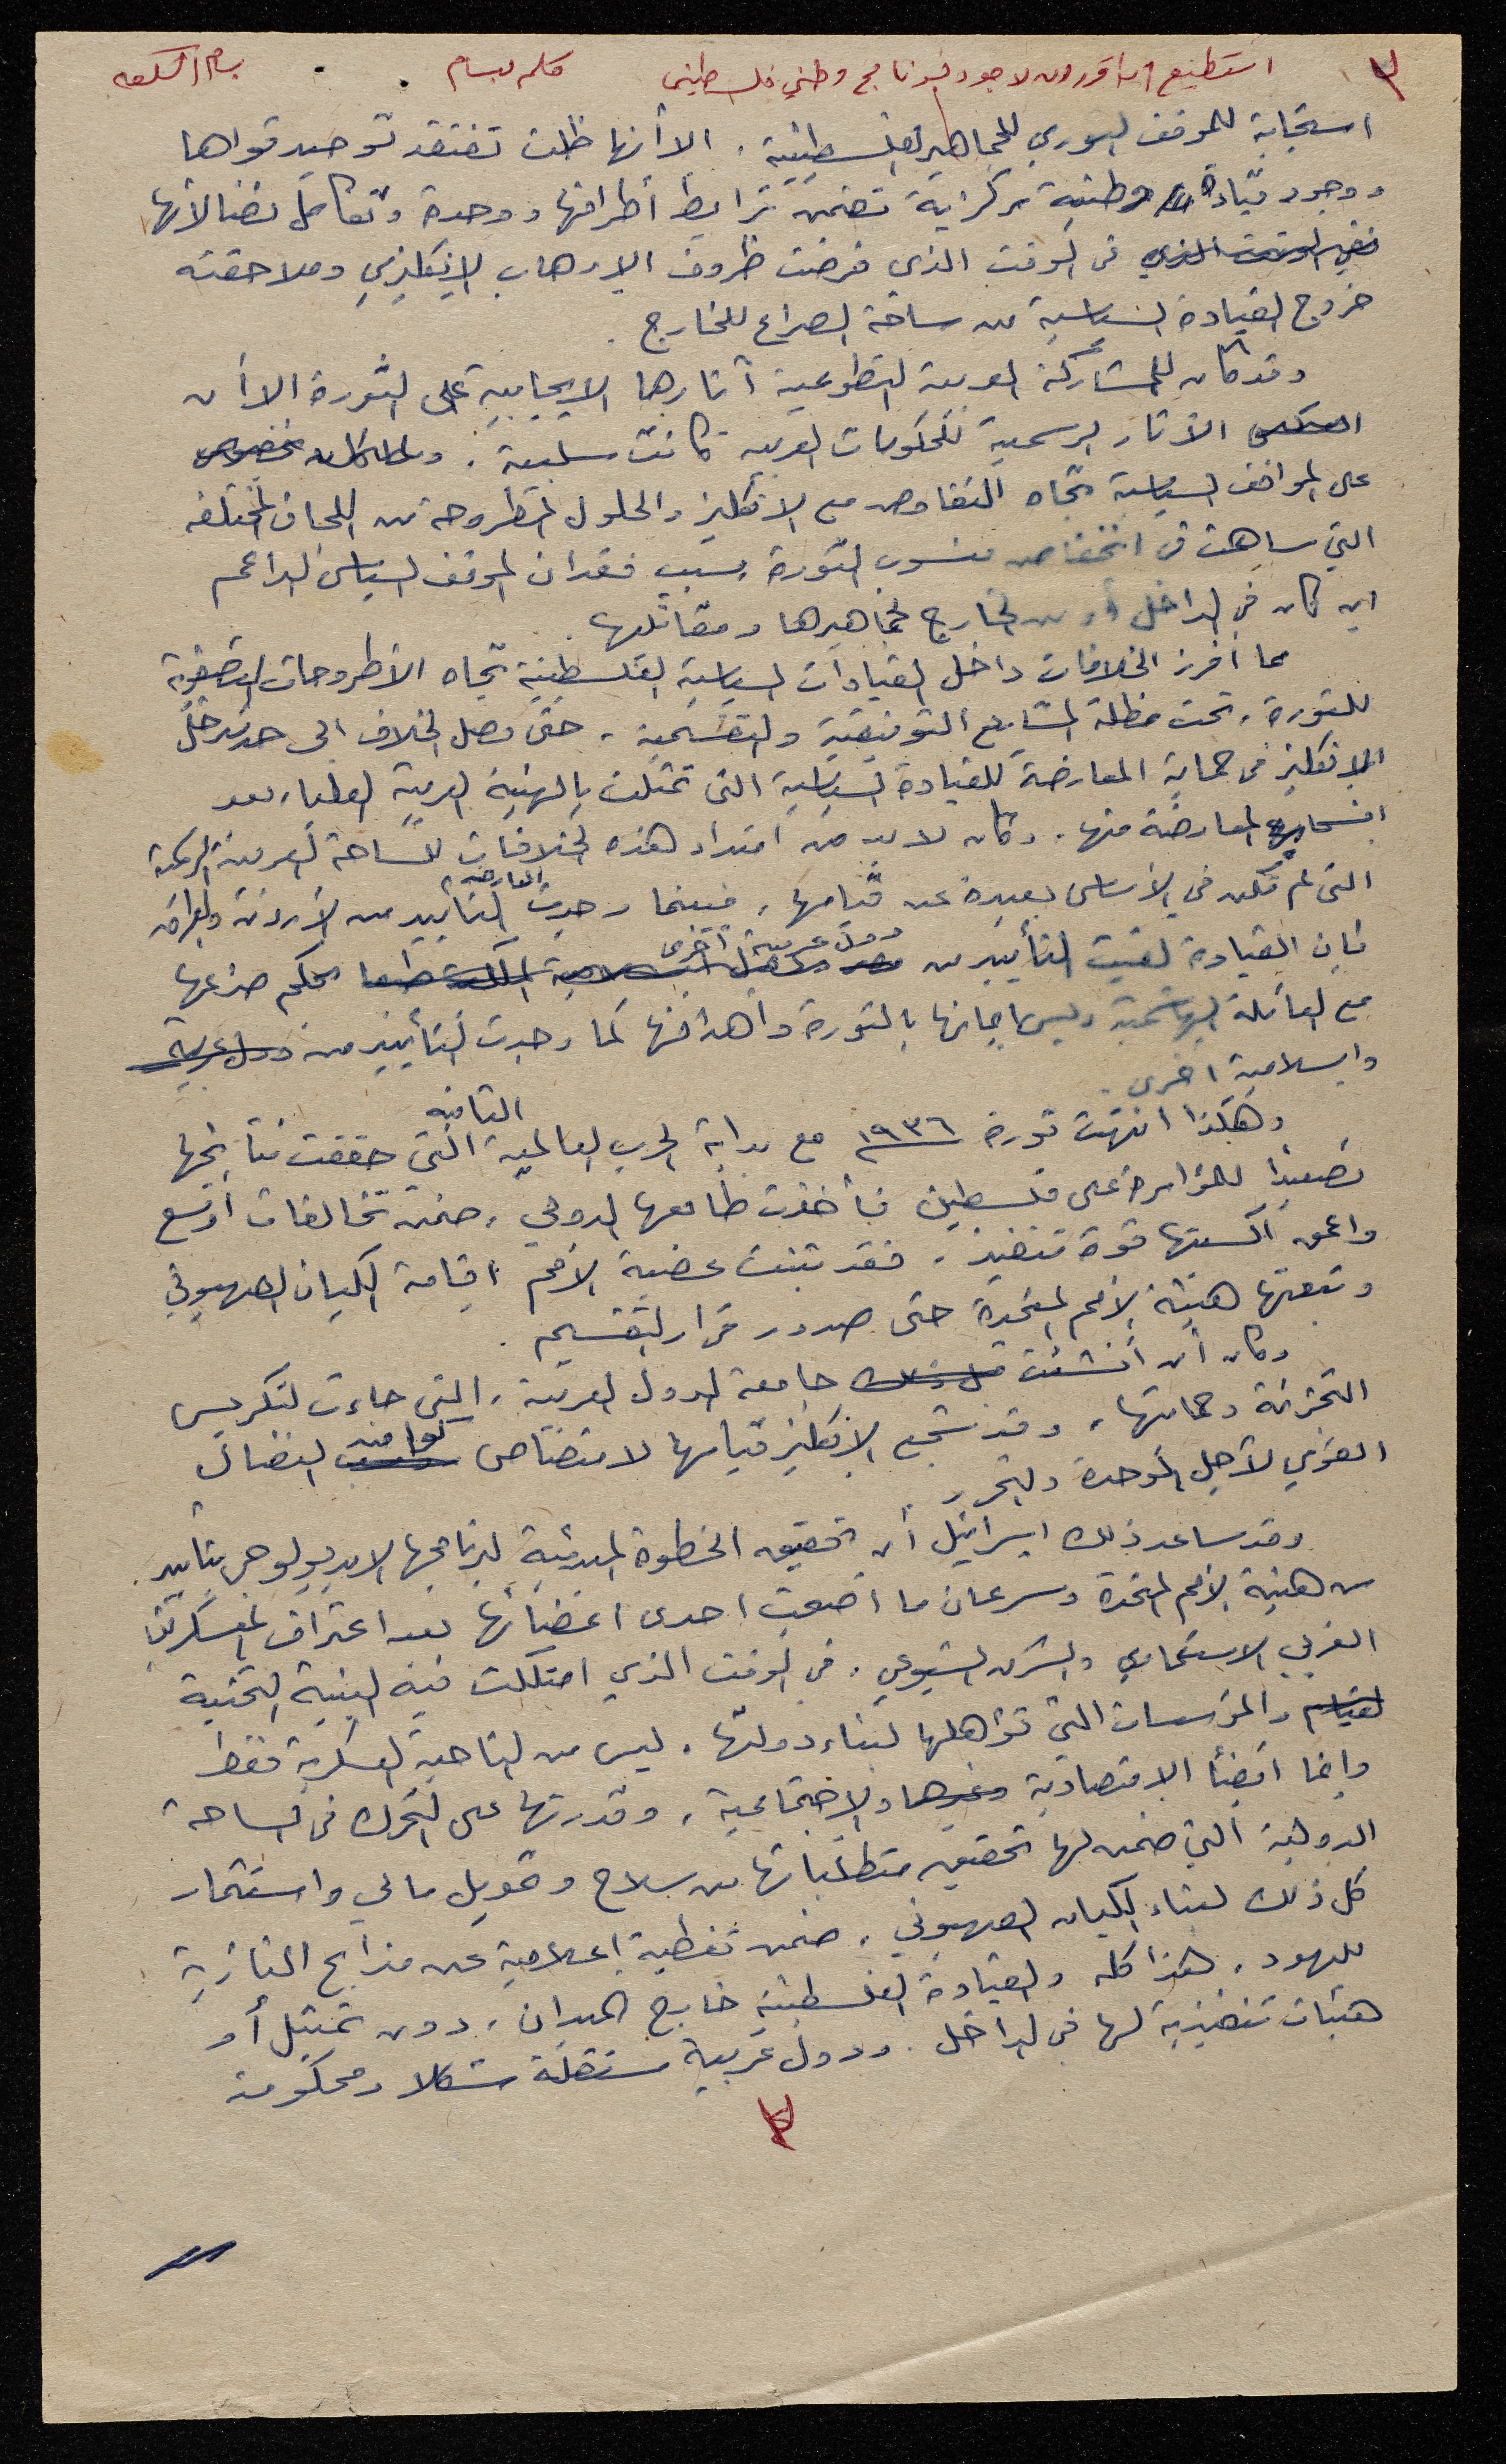 ٣ استطيع ان اقرر ان لا جود لبرنامج وطني فلسطيني بقلم بسام بسام الشكعه
استجابة للموقف الثوري للجماهير الفلسطينية . الا أنها ظلت تفتقد توحيد قواها
ووجود قيادة وطنية مركزية تضمن ترابط أطرافها ووحدة وتكامل نضالاتها
في الوقت الذي في الوقت الذي فرضت ظروف الارهاب الانكليزي وملاحقته
خروج القيادة السياسية من ساحة الصراع للخارج .
وقد كان للمشاركة العربية التطوعية آثارها الايجابية على الثورة الا أن
الآثار الرسمية للحكومات العربية كانت سلبية .
على المواقف السياسية تجاه التفاوض مع الانكليز والحلول المطروحة من اللجان المختلفه
التي ساهمت في انخفاض منسوب الثورة بسبب فقدان الموقف السياسي الداعم
ان كان في الداخل أو من الخارج لجماهيرها ومقاتليها .
مما أفرز الخلافات داخل القيادات السياسية الفلسطينية تجاه الأطروحات التصفوية
للثورة ، تحت مظلة المشاريع التوفيقية والتقسيمية ، حتى وصل الخلاف الى حد تدخل
الانكليز في حماية المعارضة للقيادة السياسية التي تمثلت بالهيئة العربية العليا ، بعد
انسحاب المعارضة منها . وكان لابد من امتداد هذه الخلافات للساحة العربية الرسمية
التي لم تكن في الأساس بعيدة عن قيامها ، فبينما وجدت المعارضة التأييد من الأردن والعراق
فان القيادة لقيت التأييد من دول عربية أخرى بحكم صراعها
مع العائلة الهاشمية وليس ايمانها بالثورة وأهدافها كما وجدت التأييد من دول عربية
واسلامية اخرى .
وهكذا انتهت ثورة ١٩٣٦ مع بداية الحرب العالمية الثانيه التي حققت نتائجها
تصعيدا للمؤامرة على فلسطين فأخذت طابعها الدولي ، ضمن تحالفات أوسع
واعمق أكسبتها قوة تنفيذ ، فقد تبنت عصبة الأمم اقامة الكيان الصهيوني
وتبعتها هيئة الأمم المتحدة حتى صدور قرار التقسيم .
وكان أن أنشئت قبل ذلك جامعة الدول العربية ، التي جاءت لتكريس
التجزئة وحمايتها ، وقد شجع الانكليز قيامها لامتصاص كوامن النضال
القومي لأجل الوحدة والتحرر .
وقد ساعد ذلك اسرائيل أن تحقيق الخطوة المبدئية لبرنامجها الايديولوجي بتأييد
من هيئة الأمم المتحدة وسرعان ما أضحت احدى اعضائها بعد اعتراف المعسكرين
الغربي الاستعماري والشرقي الشيوعي ، في الوقت الذي امتلكت فيه البنية التحتية
لقيام والمؤسسات التي تؤهلها لبناء دولتها ، ليس من الناحية العسكرية فقط
وانما أيضا الاقتصادية وغيرها والاجتماعية ، وقدرتها على التحرك في الساحة
الدولية التي ضمن لها تحقيق متطلباتها من سلاح وتمويل مالي واستثمار
كل ذلك لبناء الكيان الصهيوني ، ضمن تغطية إعلامية عن مذابح النازية
لليهود ، هذا كله والقيادة الفلسطينية خارج الميدان ، دون تمثيل أو
هيئات تنفيذية لها في الداخل . ودول عربية مستقلة شكلا ومحكومة